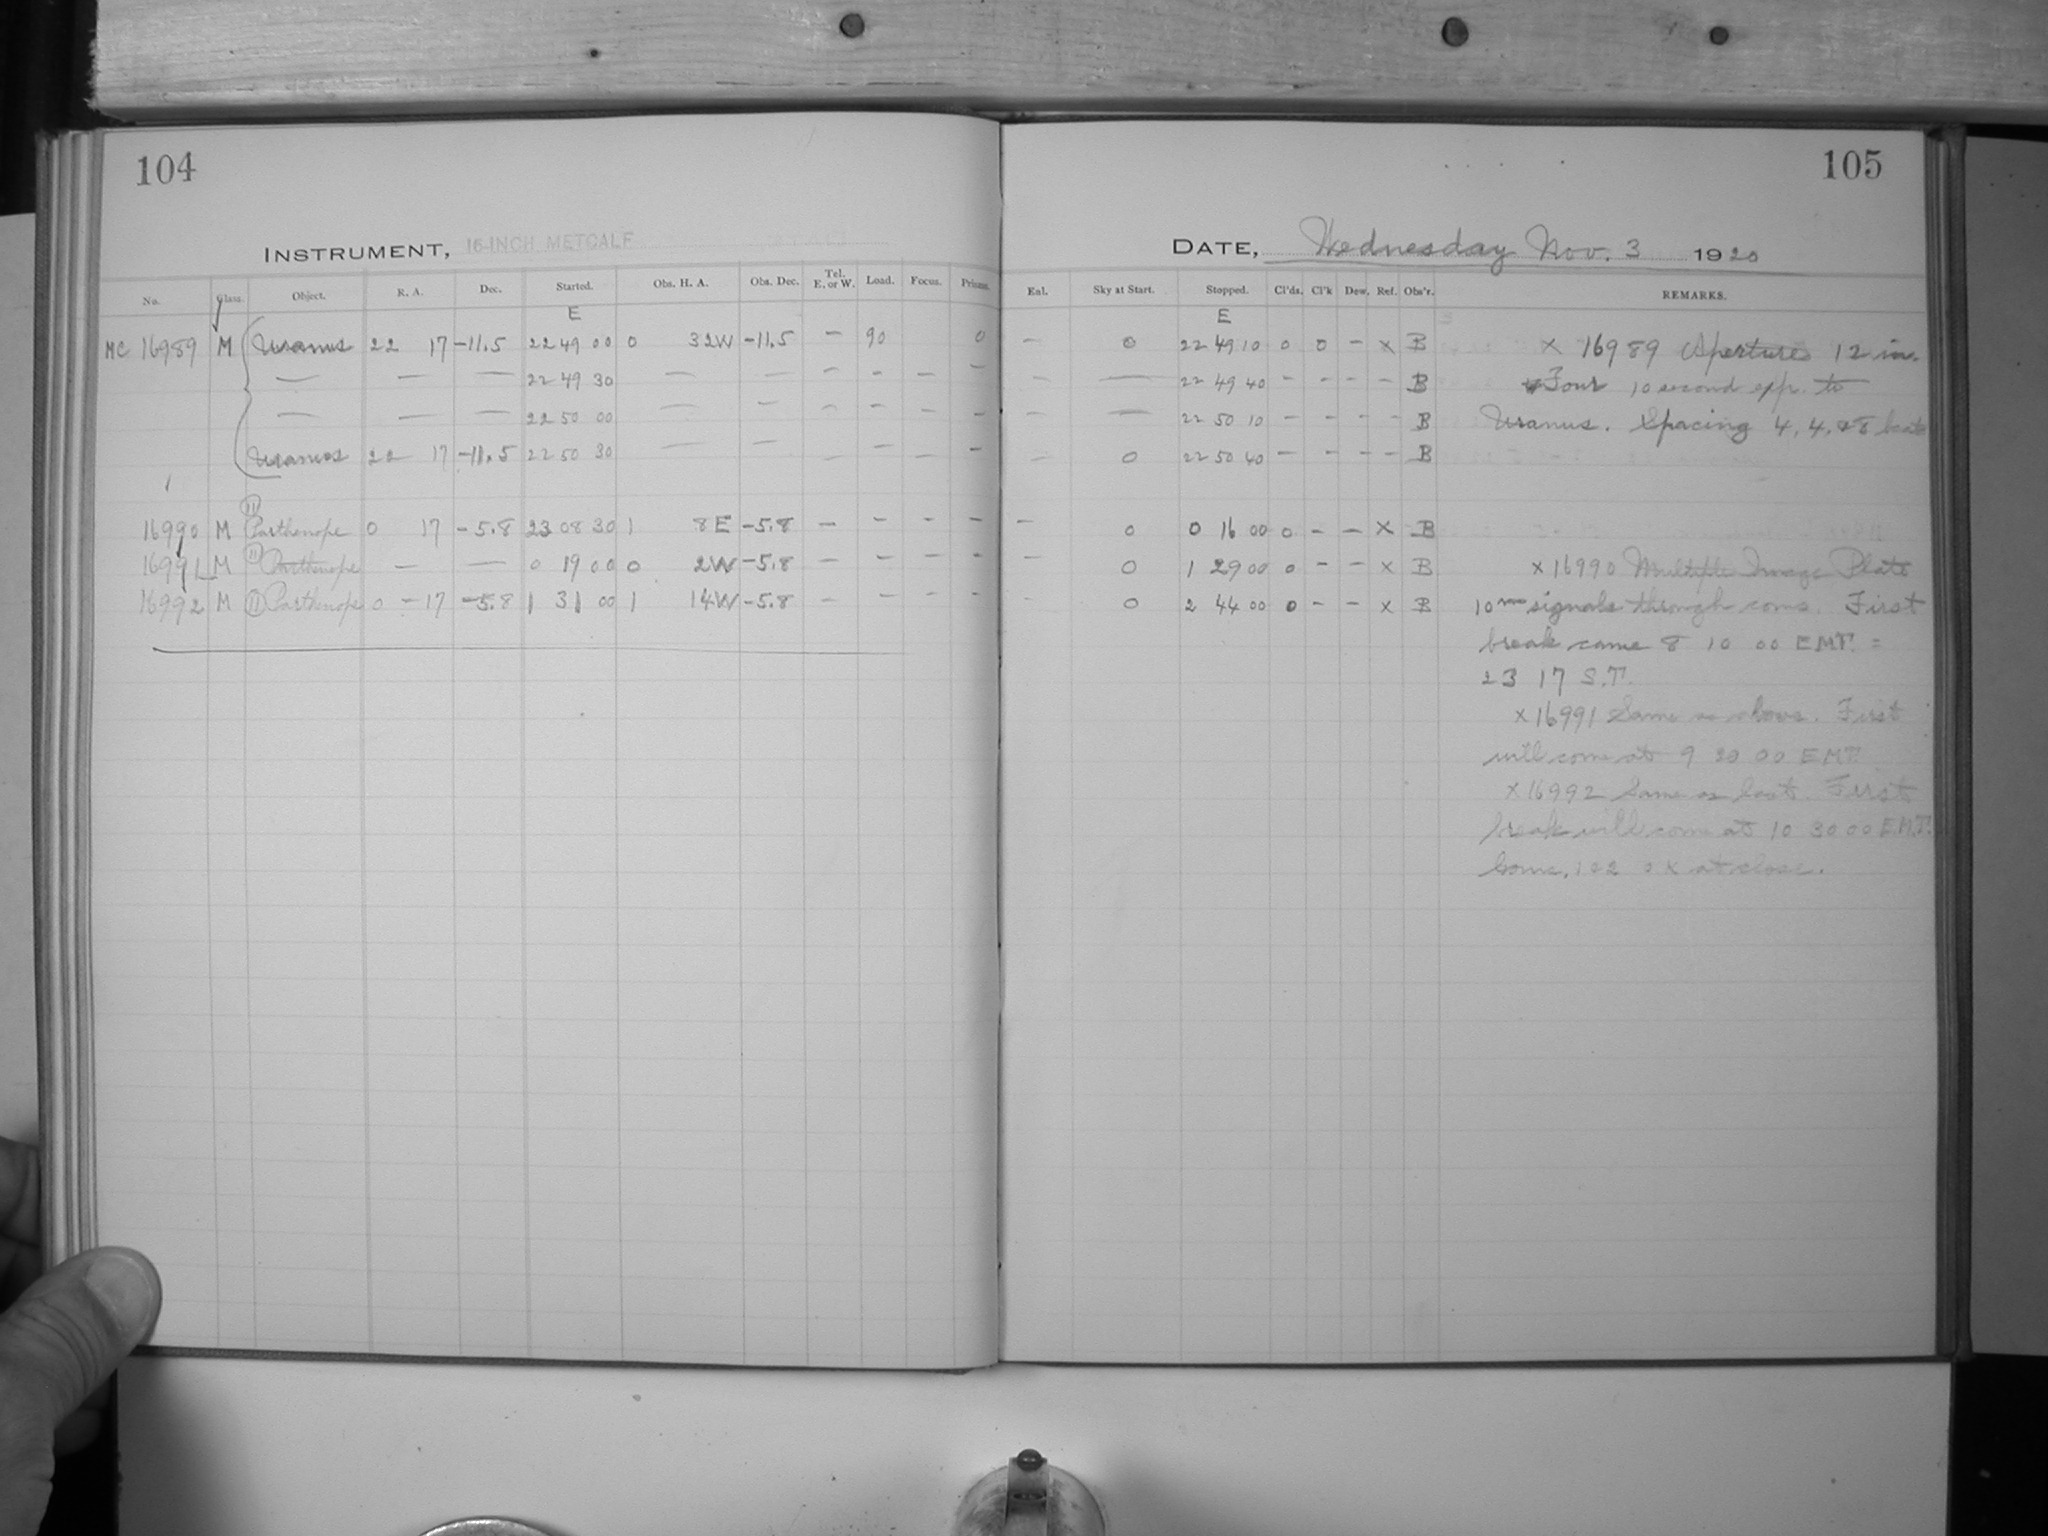 104
INSTRUMENT, 16-INCH METCALF
No. Glass. Object. R. A. Dec. Started. Obs. H. A. Obs. Dec. Tel. E. or W. Load. Focus. Prisms.
E
MC 16989 M Uranus 22 17 -11.5 22 49 00 0 32W -11.5 — 90 0
— — — 22 49 30 — — — - - -
— — — 22 50 00 — — — - - -
Uranus 22 17 -11.5 22 50 30 — — — - - -
16990 M (11) Parthenope 0 17 -5.8 23 08 30 1 8E -5.8 — - - -
16991 M (11) Parthenope — — 0 19 00 0 2W -5.8 — - - -
16992 M (11) Parthenope 0 - 17 -5.8 1 31 00 1 14W -5.8 - - - -
105
DATE, Wednesday Nov. 3 1920
Enl. Sky at Start. Stopped. Cl'ds. Cl'k Dew. Ref. Obs'r. REMARKS.
E
— 0 22 49 10 0 0 - x B x 16989 Aperture 12 in.
— — 22 49 40 - - - - B Four 10 second exp. to
— — 22 50 10 - - - - B Uranus. Spacing 4, 4, 8
— 0 22 50 40 - - - - B
— 0 0 16 00 0 - - x B
— 0 1 29 00 0 - - x B x 16990 Multiple Image Plate
— 0 2 44 00 0 - - x B 10 signals through coms. First
break came 8 10 00 EMT. =
23 17 S.T.
x 16991 Same as above. First
will come at 9 20 00 EMT.
x 16992 Same as last. First
break will come at 10 30 00 E.M.T.
102 at close.